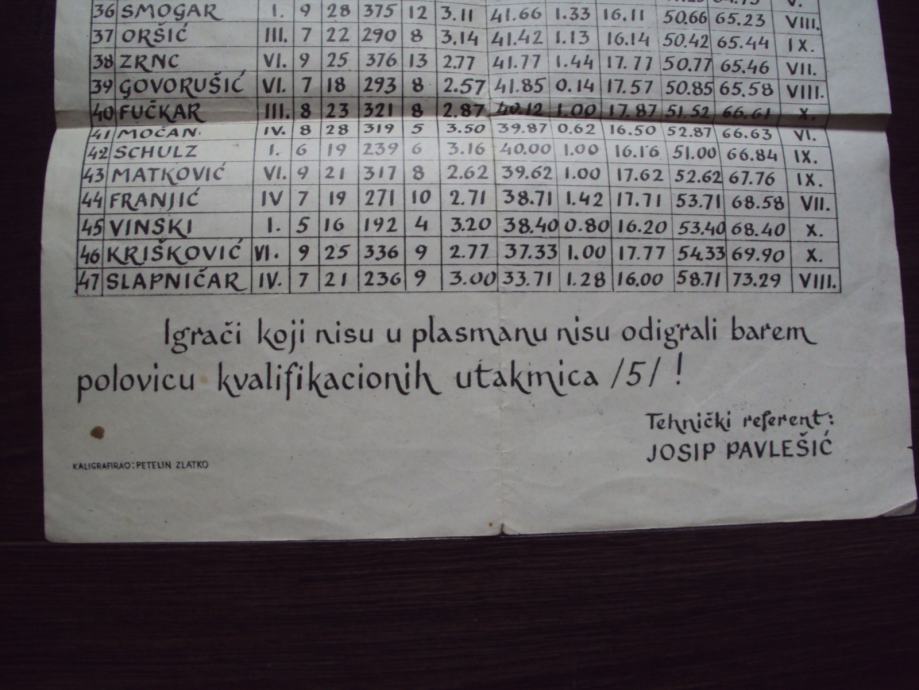 36 SMOGAR I. 9 28 375 12 3.11 41.66 1.33 16.11 50.66 65.23 VIII.
37 ORŠIĆ III. 7 22 290 8 3.14 41.42 1.13 16.14 50.42 65.44 IX.
38 ZRNC VI. 9 25 376 13 2.77 41.77 1.44 17.77 50.77 65.46 VII.
39 GOVORUŠIĆ VI. 7 18 293 8 2.57 41.85 0.14 17.57 50.85 65.58 VIII.
40 FUČKAR III. 8 23 321 8 2.87 40.12 1.00 17.87 51.52 66.61 X.
41 MOČAN. IV. 8 28 319 5 3.50 39.87 0.62 16.50 52.87 66.63 VI.
42 SCHULZ I. 6 19 239 6 3.16 40.00 1.00 16.16 51.00 66.84 IX.
43 MATKOVIĆ VI. 9 21 317 8 2.62 39.62 1.00 17.62 52.62 67.76 IX.
44 FRANJIĆ IV 7 19 271 10 2.71 38.71 1.42 17.71 53.71 68.58 VII.
45 VINSKI I. 5 16 192 4 3.20 38.40 0.80 16.20 53.40 68.40 X.
46 KRIŠKOVIĆ VI. 9 25 336 9 2.77 37.33 1.00 17.77 54.33 69.90 X.
47 SLAPNIČAR IV. 7 21 236 9 3.00 33.71 1.28 16.00 58.71 73.29 VIII.
Igrači koji nisu u plasmanu nisu odigrali barem
polovicu kvalifikacionih utakmica /5/ !
Tehnički referent:
JOSIP PAVLEŠIĆ
KALIGRAFIRAO: PETELIN ZLATKO